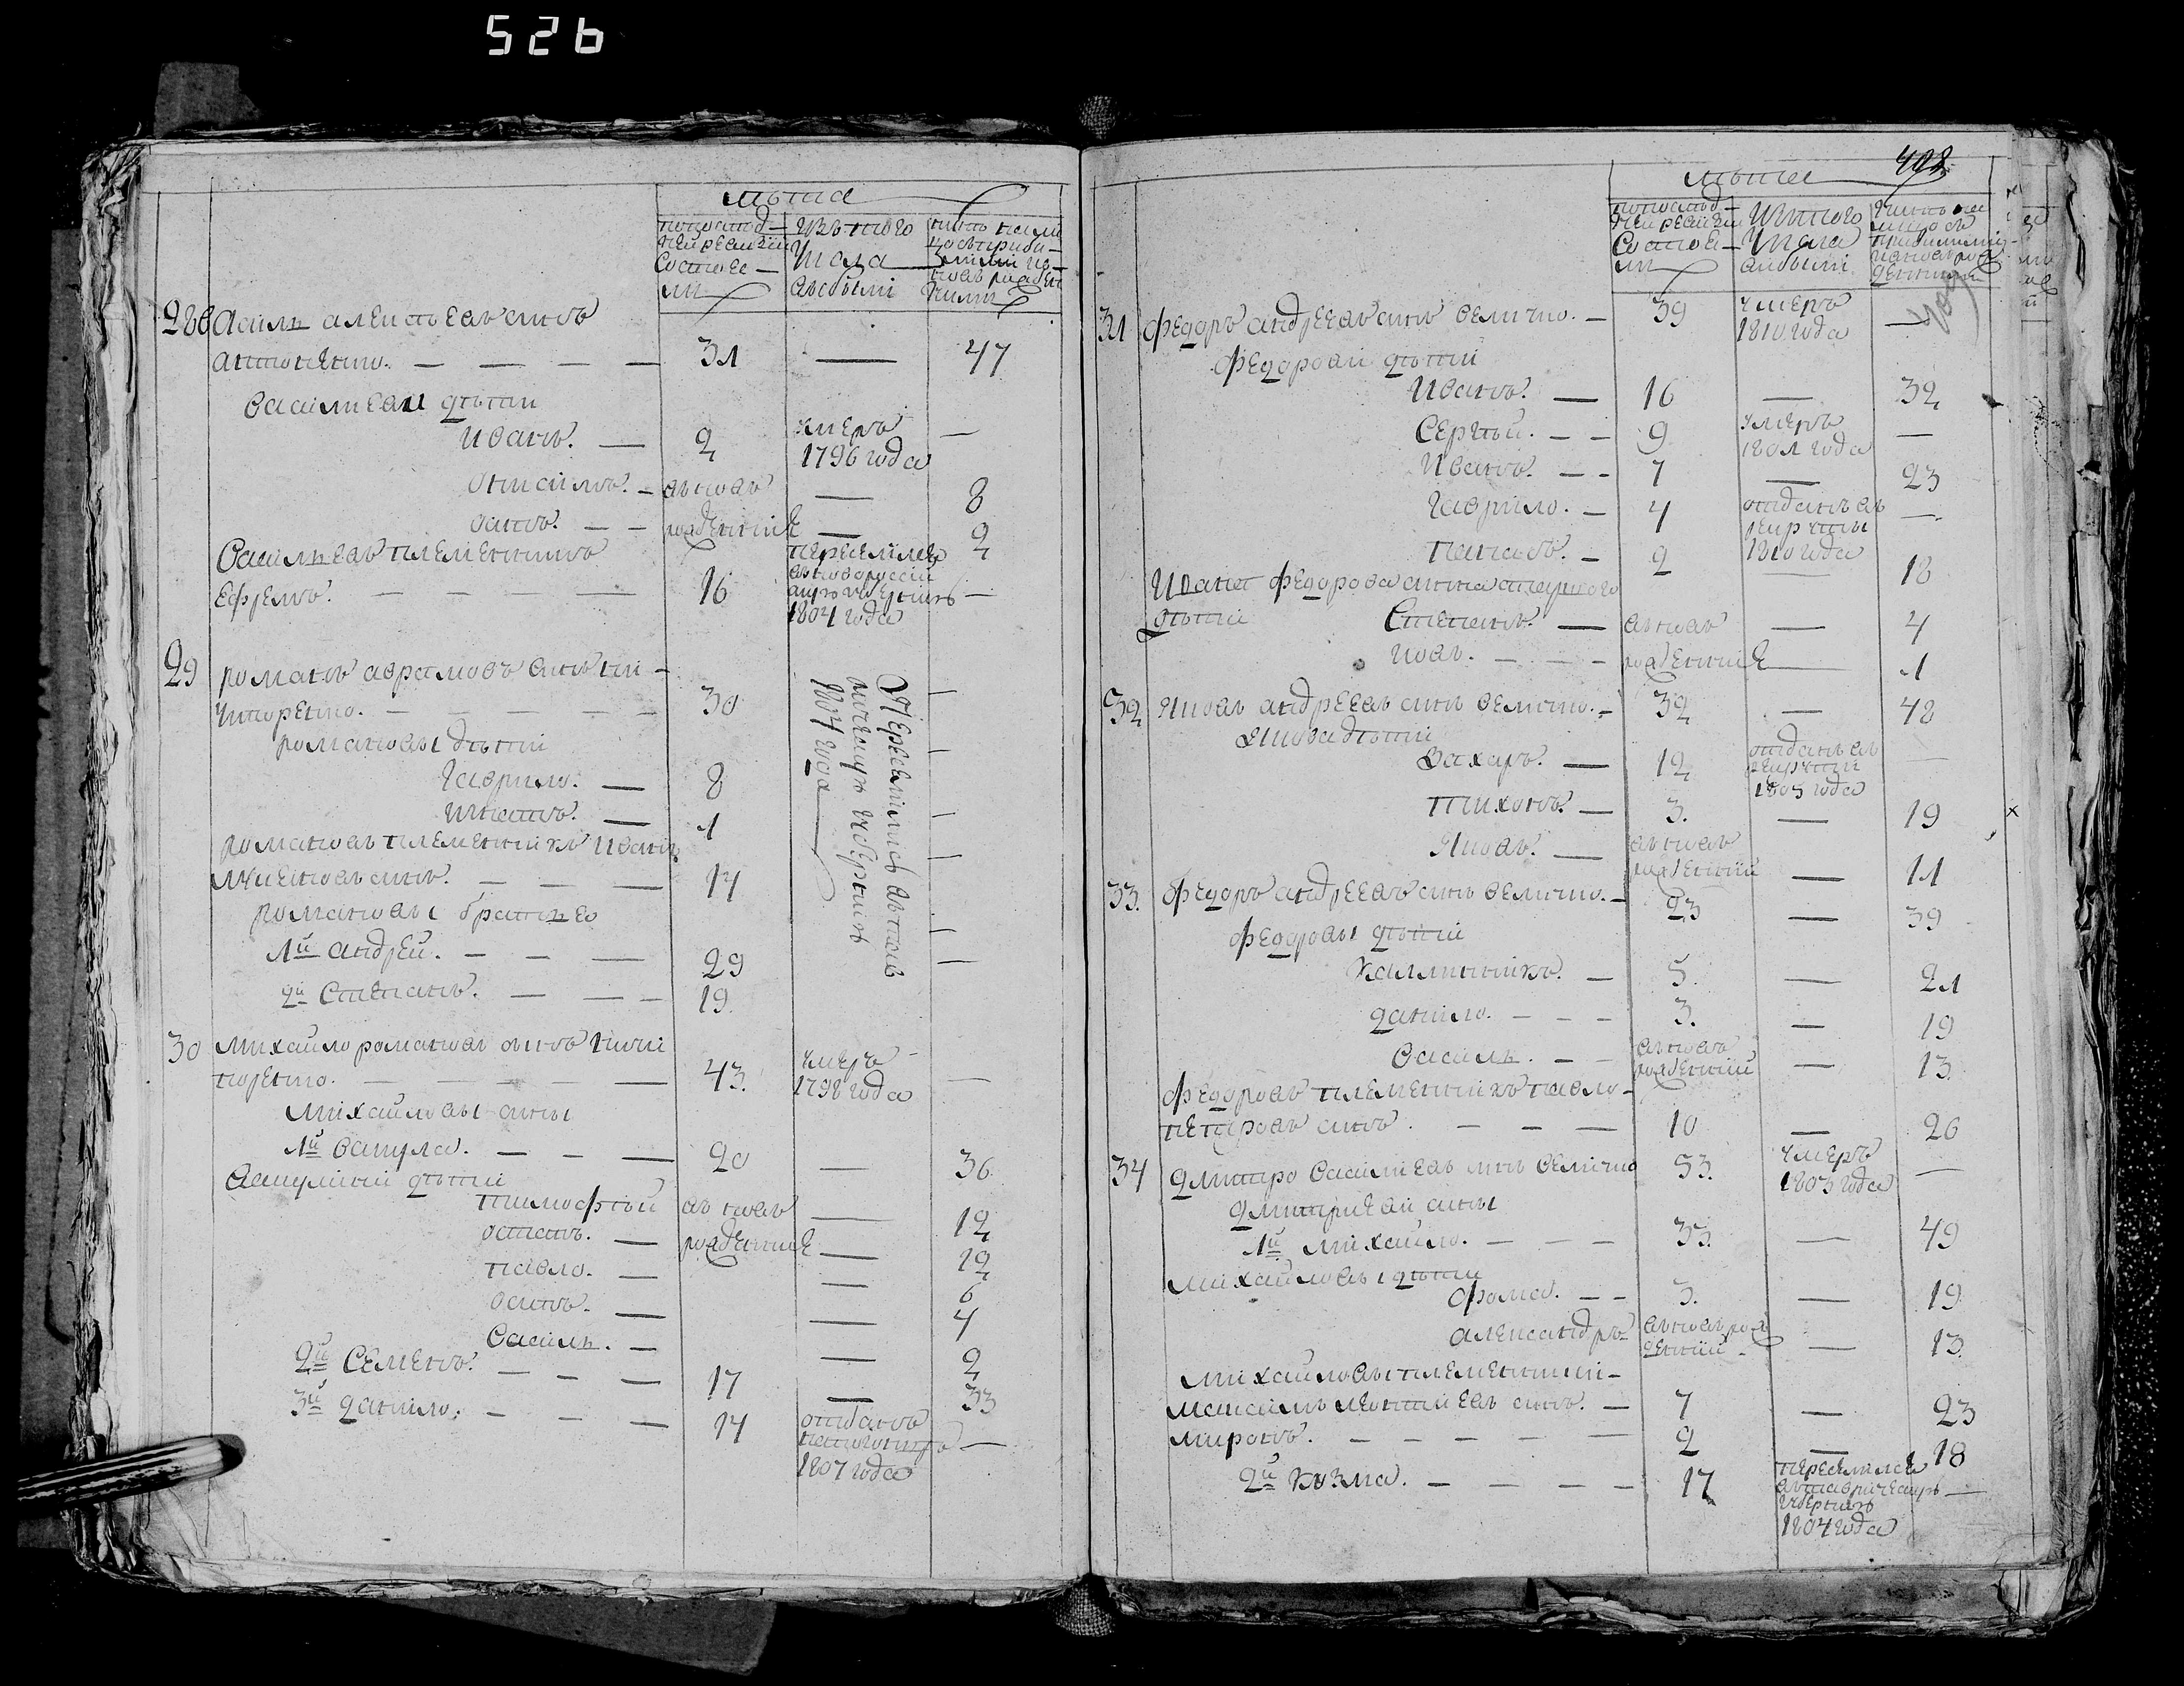 526
лѣта
по последней ревизіи состоя ли
изъ того числа выбыли
28 василь алексѣевъ сынъ
антоненко. — 31 — 47
василиевы дѣти
иванъ. — 2 умеръ 1796 года —
онисимъ. — вновь — 8
осипъ. — рожденние — 2
василиевъ племенникъ
ефремъ. — 16 переселился в новоросійскую губернию 1804 года —
29 романъ аврамовъ сынъ ни-
чипоренко. — 30 —
Переселились въ таврическую губернию 1804 года
романовы дѣти
гаврило. — 8 —
игнатъ. — 1 —
романовъ племенникъ иванъ
сынъ. — 14 —
романовы братья его
1й андрей. — 29 —
2й степанъ. — 19. —
30 михайло романовъ сынъ ничи
поренко. — 43. умеръ 1798 года —
михайловы сыны
1й вакула. — 20 — 36.
вакулини дѣти
тимофѣй вновь — 12
остапъ. — рожденние — 12
павло. — — 6
осипъ. — — 4
василь. — — 2
2й семенъ. — 17 — 33
3й данило. — 14 отданъ 1807 года —
408
лѣта
по последней ревизіи состоя ли
изъ того числа выбыли
31 федоръ андреевъ сынъ величко. — 39 умеръ 1810 года —
федорови дѣти
иванъ. — 16 — 32
сергѣй. — 9 умеръ 1801 года —
иванъ. — 7 — 23
гаврило. — 4 отданъ въ рекруты 1810 года —
панасъ. — 2 — 18
ивана федорова сына старшого
дѣти степанъ. — вновь — 4
яковъ. — рожденние — 1
32 яковъ андреевъ сынъ величко. — 32 — 48
якова дѣти
захаръ. — 12 отданъ въ рекрути 1805 года —
тихонъ. — 3. — 19
яковъ. — вновь рожденний — 11
33. федоръ андреевъ сынъ величко. — 23 — 39
федоровы дѣти
калинникъ. — 5. — 21
данило. — 3. — 19
василь. — вновь рожденний — 13
федоровъ племенникъ павло
петровъ сынъ. — 10 — 26
34 дмитро василиевъ сынъ величко 53. умеръ 1803 года —
дмитриеви сыны
1й михайло. — 33. — 49
михайловы дѣти
фома. — 3. — 19
александръ вновь рожденний — 13.
михайловы племенники
максимъ леонтиевъ сынъ. — 7 — 23
миронъ. — 2 — 18
2й кузма. — 17 переселился въ таврическую губернию 1804 года —